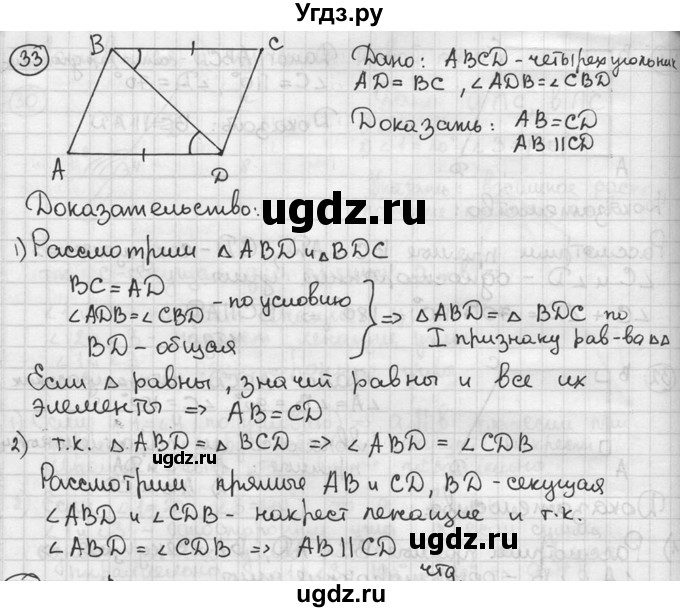 Угдз.ру
33
B
C
A
D
Дано: ABCD - четырехугольник
AD = BC, ∠ADB = ∠CBD
Доказать: AB = CD
AB || CD
Доказательство:
ugdz.ru
1) Рассмотрим △ ABD и △ BDC
BC = AD
∠ADB = ∠CBD - по условию
BD - общая
} => △ ABD = △ BDC по
I признаку рав-ва △△
Если △ равны, значит равны и все их
элементы => AB = CD
ugdz.ru
2) т.к. △ ABD = △ BCD => ∠ ABD = ∠ CDB
Рассмотрим прямые AB и CD, BD - секущая
∠ABD и ∠CDB - накрест лежащие и т.к.
∠ABD = ∠CDB => AB || CD
ugdz.ru
чтд
ugdz.ru